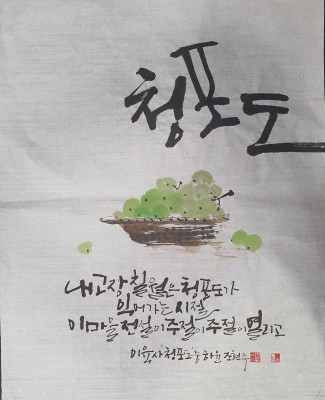 청포도
내 고장 칠월은 청포도가
익어가는 시절
이 마을 전설이 주절이 주절이 열리고
이육사 청포도 中 하윤 조현주